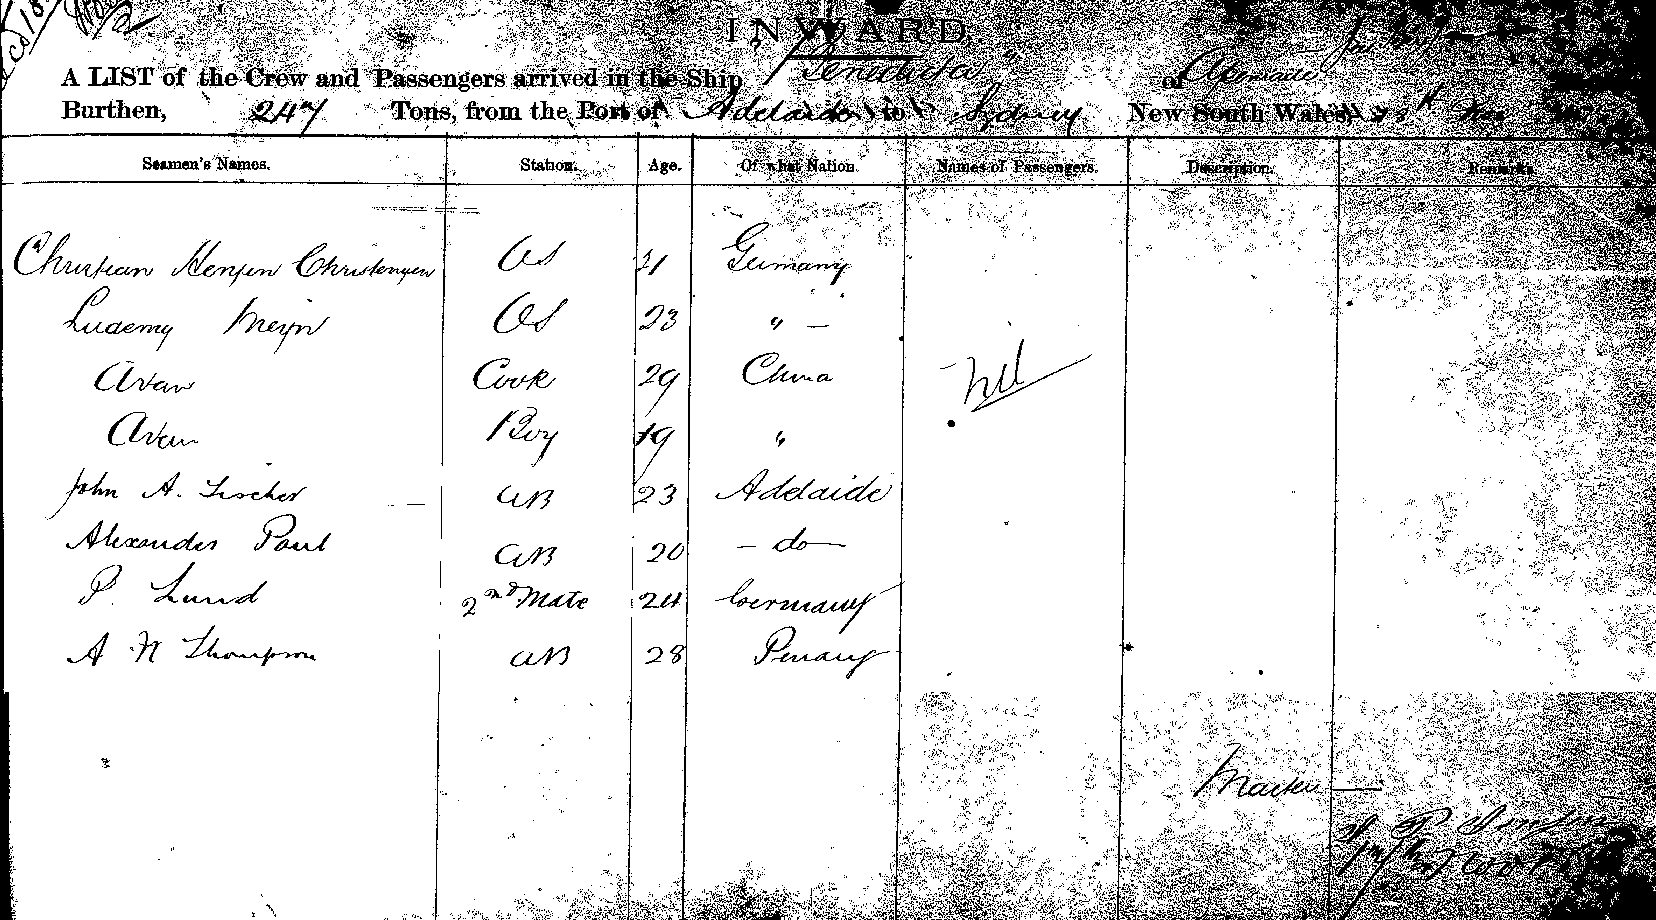 INWARD
A LIST of the Crew and Passengers arrived in the Ship of
Burthen, 247 Tons, from the Port of Adelaide to Sydney New South Wales,
Seamen's Names. Station. Age. Of what Nation. Names of Passengers. Description. Remarks.
Christian Hensen Christensen OS 21 Germany
Meyn OS 23 " —
Avan Cook 29 China Nil
Avan Boy 19 "
John A. Fischer AB 23 Adelaide
Alexander Paul AB 20 — do —
P. Lund 2nd Mate 24 Germany
A N Thompson AB 28 Penang
Master